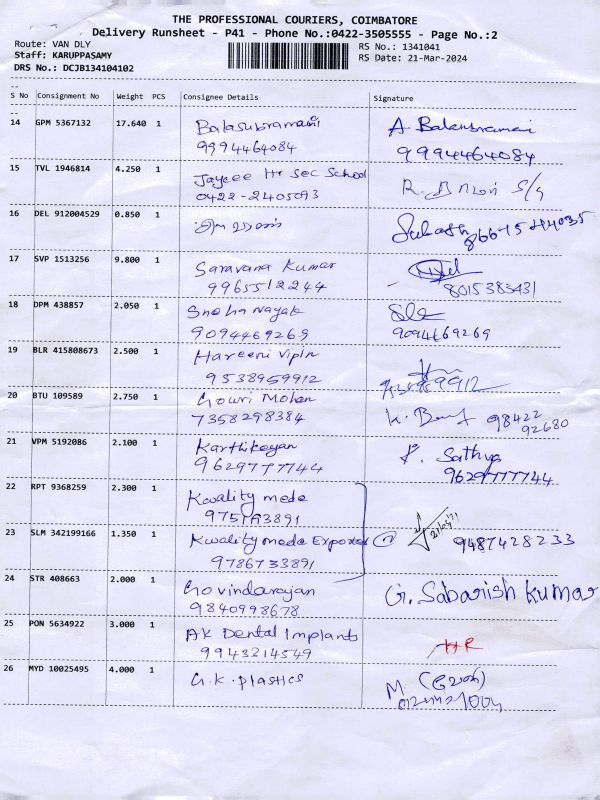 THE PROFESSIONAL COURIERS, COIMBATORE
Delivery Runsheet - P41 - Phone No.:0422-3505555 - Page No.:2
Route: VAN DLY RS No.: 1341041
Staff: KARUPPASAMY RS Date: 21-Mar-2024
DRS No.: DCJB134104102
S No Consignment No Weight PCS Consignee Details Signature
14 GPM 5367132 17.640 1 Balasubramani A. Balasubramani
9994464084 9994464084
15 TVL 1946814 4.250 1 Jaycee Hr Sec School R.
0422-2405093
16 DEL 912004529 0.850 1
17 SVP 1513256 9.800 1 Saravana Kumar
9965512244 8015383431
18 DPM 438857 2.050 1 Sneha Nayak
9094469269 9094669269
19 BLR 415808673 2.500 1 Hareeni Vipin
9538959912
20 BTU 109589 2.750 1 Gowri Mohan K.
7358298384 98422
92680
21 VPM 5192086 2.100 1 Karthikeyan P. Sathya
9629777744 9629777744
22 RPT 9368259 2.300 1 Kwality mede
23 SLM 342199166 1.350 1 Kwality mede Exported 9487428233
9786733891
24 STR 408663 2.000 1 Govindarajan G. Sabarish Kumar
9840998678
25 PON 5634922 3.000 1 AK Dental Implants HR
9943214549
26 MYD 10025495 4.000 1 G.K. plastics M.